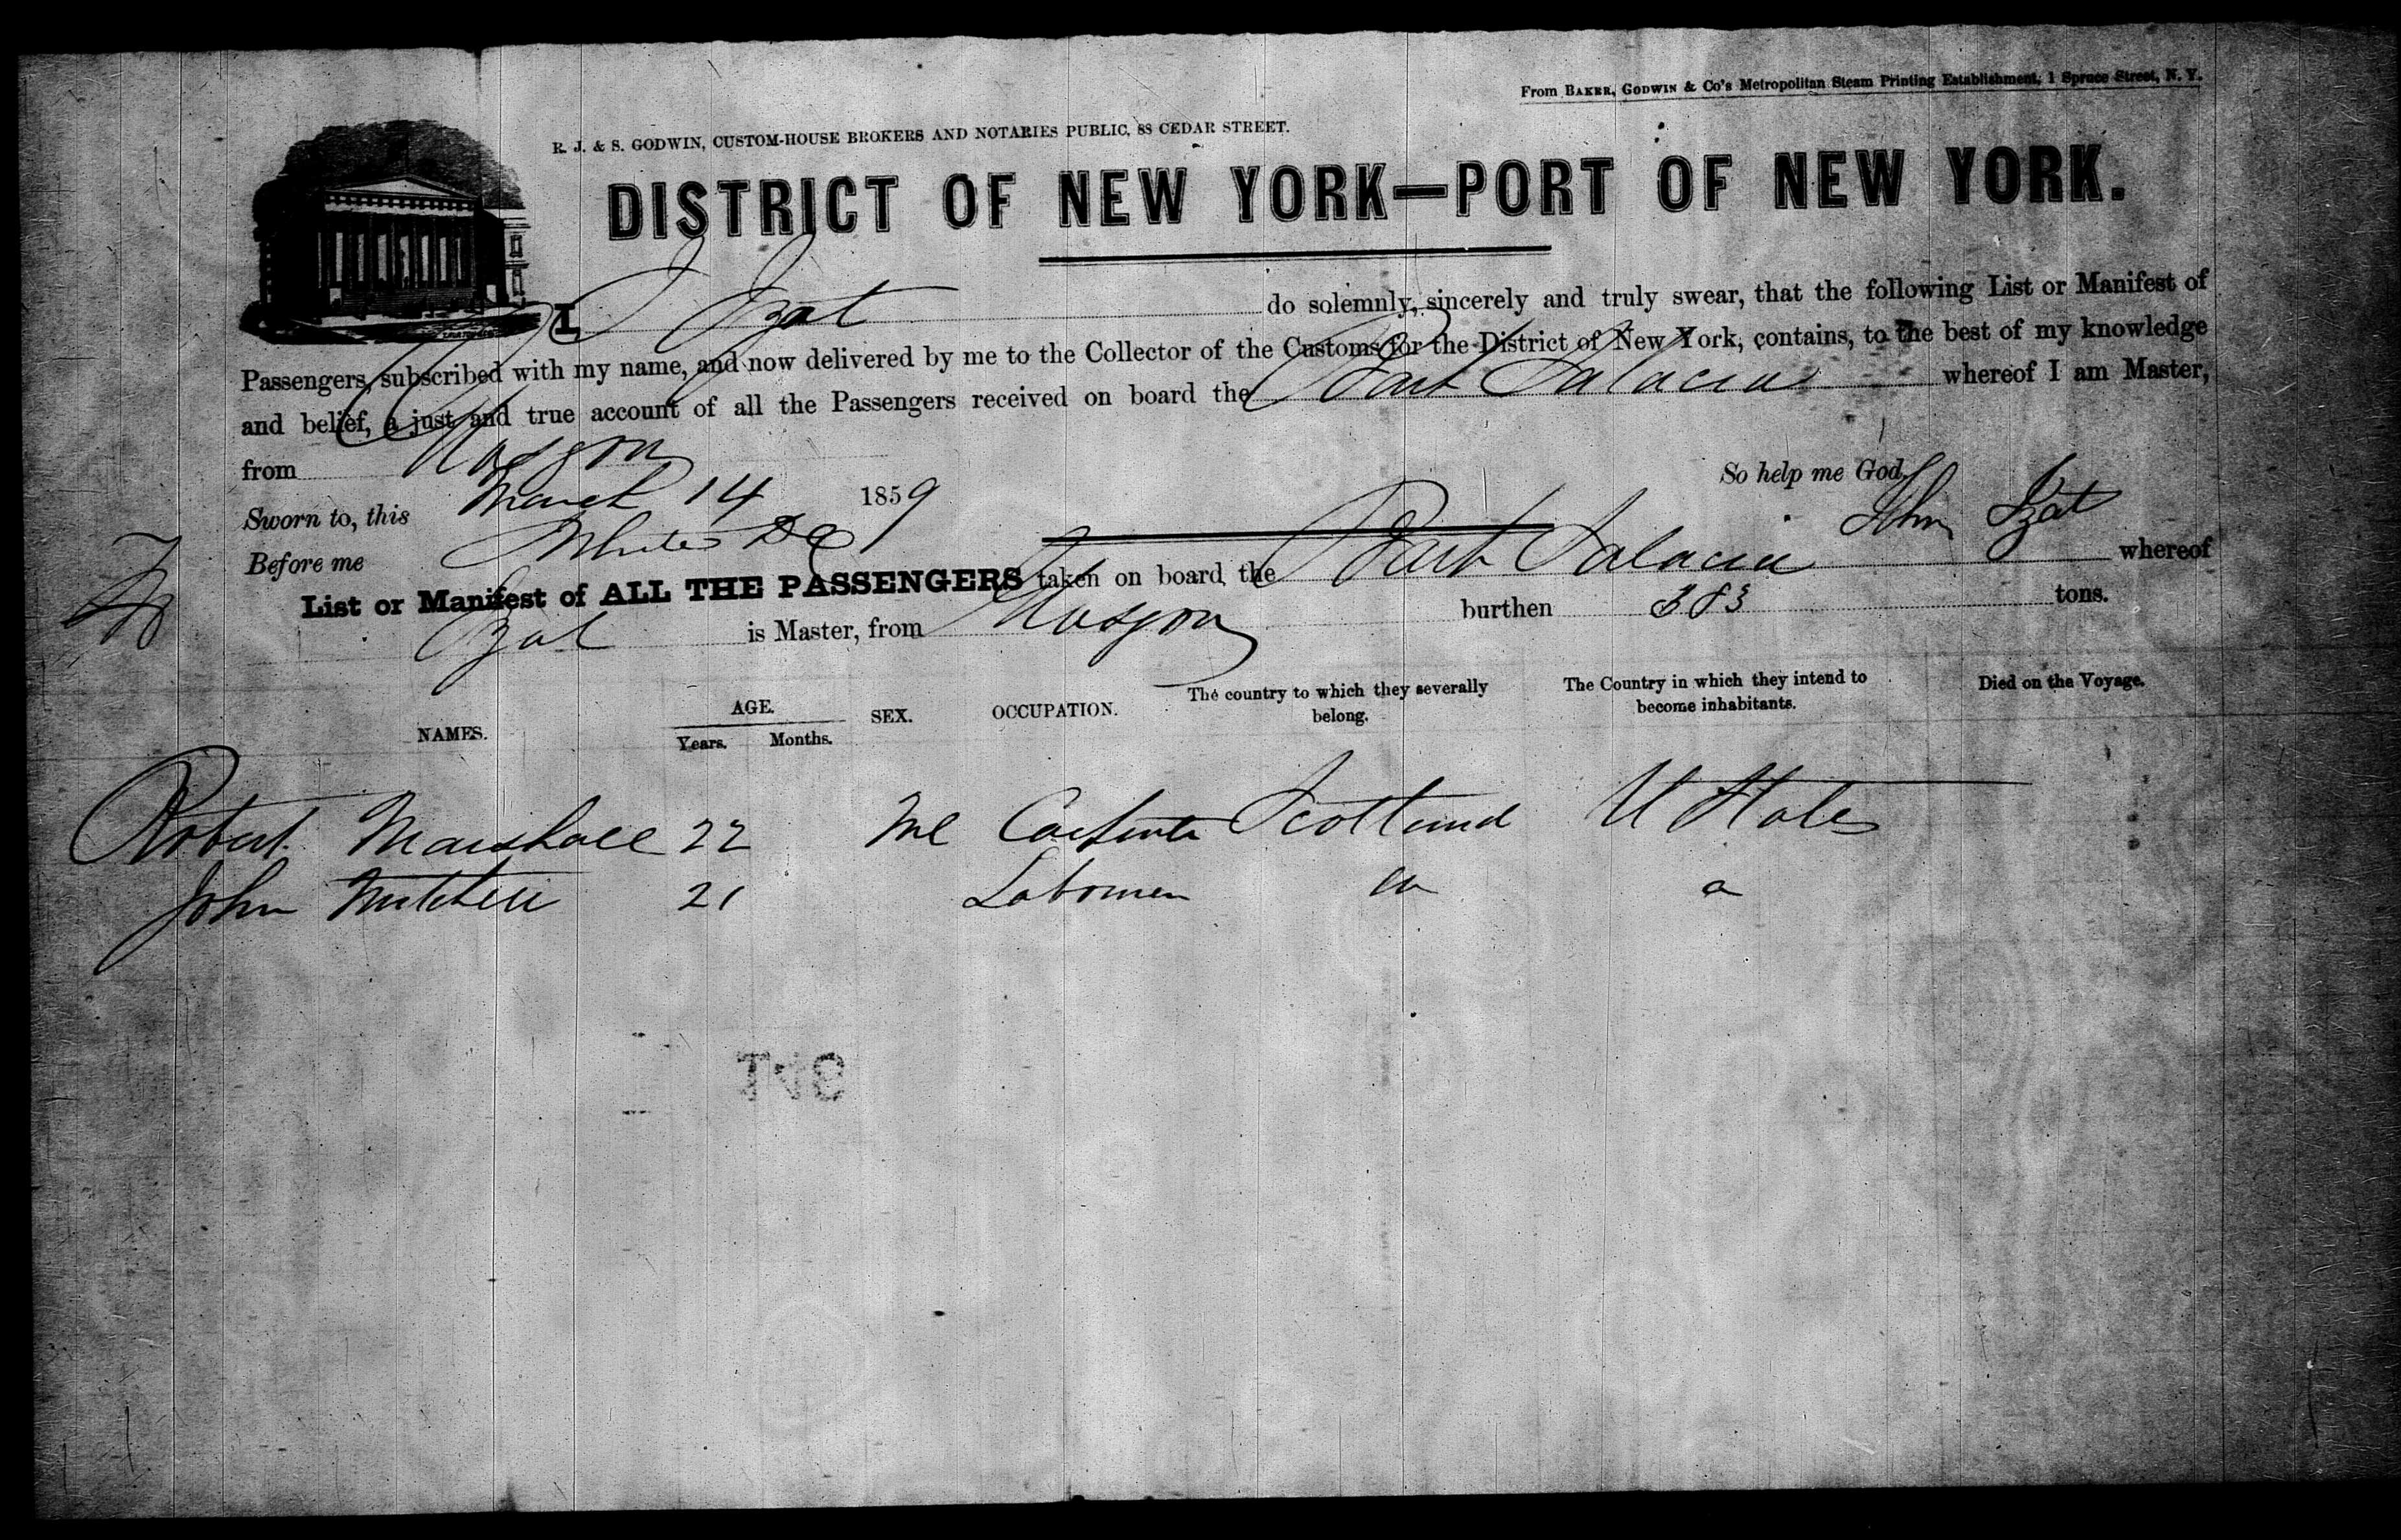 From BAKER, GODWIN & Co's Metropolitan Steam Printing Establishment, 1 Spruce Street, N. Y.
R. J. & S. GODWIN, CUSTOM-HOUSE BROKERS AND NOTARIES PUBLIC, 88 CEDAR STREET.
DISTRICT OF NEW YORK—PORT OF NEW YORK.
I, J Izat do solemnly, sincerely and truly swear, that the following List or Manifest of
Passengers, subscribed with my name, and now delivered by me to the Collector of the Customs for the District of New York, contains, to the best of my knowledge
and belief, a just and true account of all the Passengers received on board the Bark Salacia whereof I am Master,
from Glasgow
So help me God.
Sworn to, this March 14 1859
John Izat
Before me
List or Manifest of ALL THE PASSENGERS taken on board the Bark Salacia whereof
Izat is Master, from Glasgow burthen 383 tons.
NAMES. AGE. Years. Months. SEX. OCCUPATION. The country to which they severally belong. The Country in which they intend to become inhabitants. Died on the Voyage.
Robert Marshall 22 Ml Carpenter Scotland U States
John Mitchell 21 Labourer